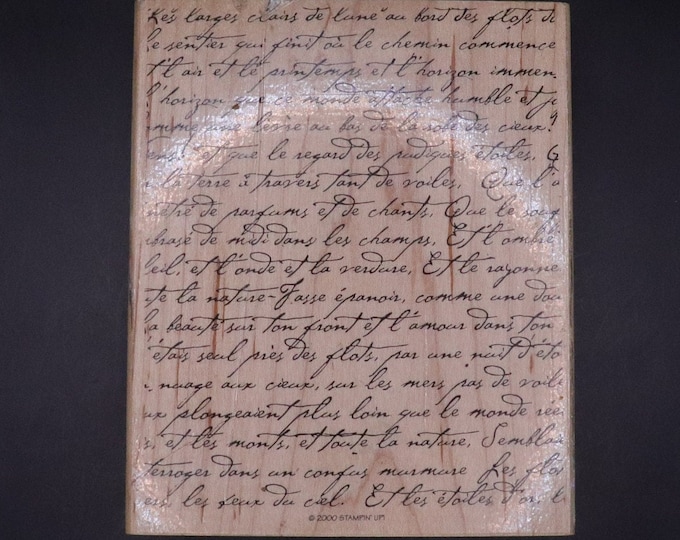 Les larges clairs de lune au bord des flots d
le sentier qui finit où le chemin commence
Et l'air et le printemps et l'horizon immen
l'horizon que ce monde attache humble et j
mme une lèvre au bas de la robe des cieux!
et que le regard des pudiques étoiles, Q
a la terre à travers tant de voiles, Que l'a
nétré de parfums et de chants, Que le souf
brasé de midi dans les champs, Et l'ombre
leil, et l'onde et la verdure, Et le rayonne
te la nature-Fasse épanoir, comme une dou
a beauté sur ton front et l'amour dans ton
étais seul près des flots, par une nuit d'éto
nuage aux cieux, sur les mers pas de voile
ux plongeaient plus loin que le monde rée
s, et les monts, et toute la nature, Semblai
terroger dans un confus murmure Les flo
ers, les feux du ciel. Et les étoiles d'or, l
© 2000 STAMPIN' UP!